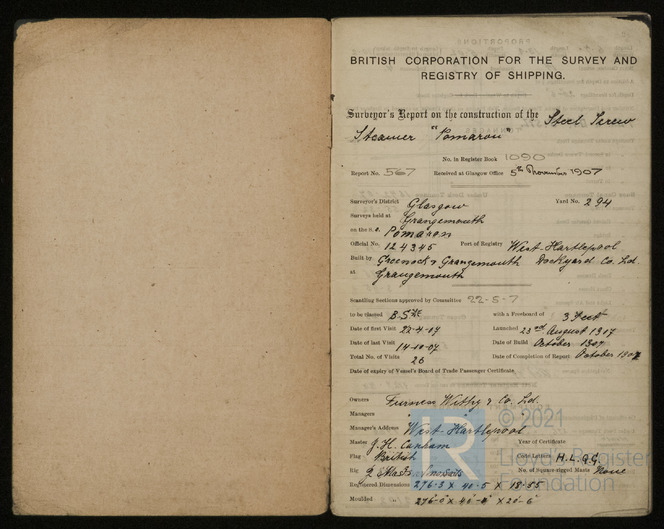 BRITISH CORPORATION FOR THE SURVEY AND
REGISTRY OF SHIPPING.
Surveyor's Report on the construction of the Steel Screw
Steamer "Pomaron"
No. in Register Book 1090
Report No. 567 Received at Glasgow Office 5th November 1907
Surveyor's District Glasgow Yard No. 294
Surveys held at Grangemouth
on the S.S. Pomaron
Official No. 124345 Port of Registry West Hartlepool
Built by Greenock & Grangemouth Dockyard Co. Ld.
at Grangemouth
Scantling Sections approved by Committee 22-5-7
to be classed B.S. with a Freeboard of 3 Feet
Date of first Visit 22-4-07 Launched 23rd August 1907
Date of last Visit 14-10-07 Date of Build October 1907
Total No. of Visits 28 Date of Completion of Report October 1907
Date of expiry of Vessel's Board of Trade Passenger Certificate
Owners Furness Withy & Co. Ld.
Managers
Manager's Address West Hartlepool
Master J.H. Canham Year of Certificate
Flag British Code Letters H.L.G.G.
Rig 2 Masts No. of Square-rigged Masts None
Registered Dimensions 276·3 X 40·5 X 18·55
Moulded
© 2021
Lloyd's Register
Foundation